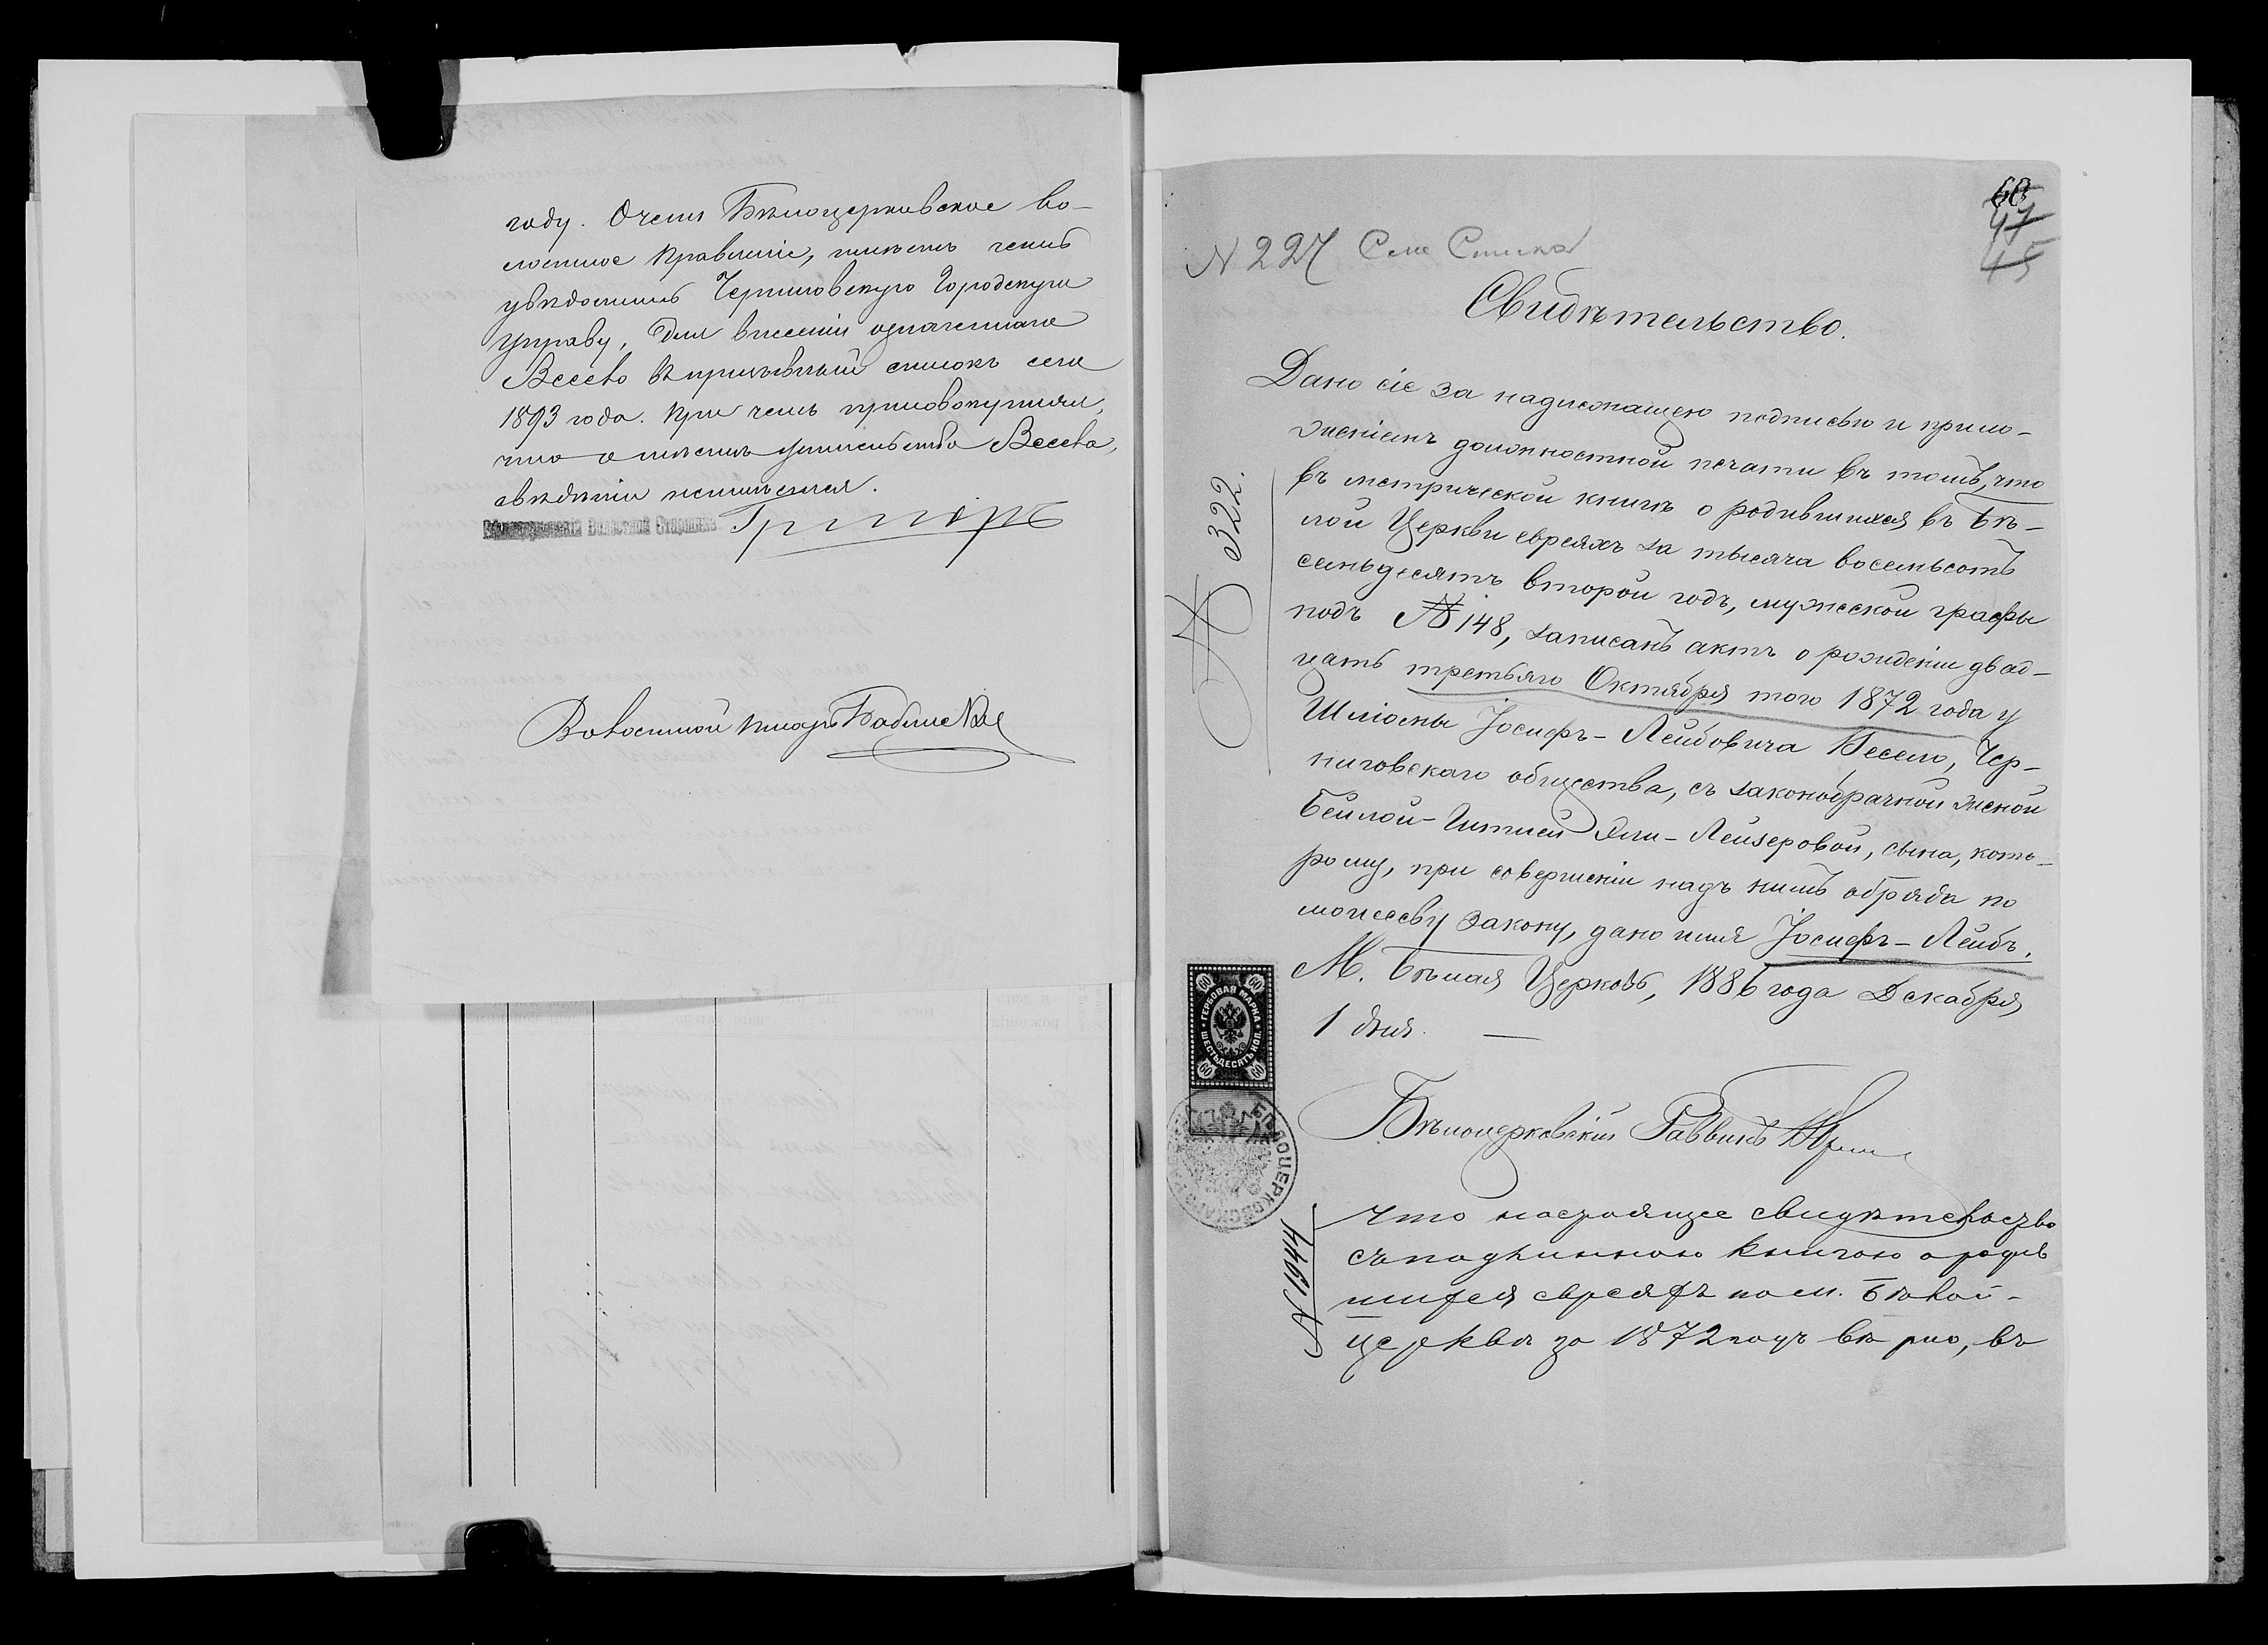 году. О чемъ Бѣлоцерковское во-
лостное Правленіе, имѣетъ честь
увѣдомить Черниговскую Городскую
Управу, для внесенія означеннаго
Весело въ призывный списокъ сего
1893 года. При чемъ присовокупляя,
что о мѣстѣ жительства Весело,
свѣдѣнія неимѣется.
Бѣлоцерковскій Волостной Старшина
Волостной писарь
60
47
45
N 227
Свидѣтельство.
Дано сіе за надлежащею подписью и прило-
женіемъ должностной печати въ томъ, что
въ метрической книгѣ о родившихся въ Бѣ-
лой Церкви евреяхъ за тысяча восемьсотъ
семьдесятъ второй годъ, мужеской графы
подъ № 148, записанъ актъ о рожденіи двад-
цать третьяго Октября того 1872 года у
Шліомы Іосифъ-Лейбовича Весело, Чер-
ниговскаго общества, съ законобрачной женой
Бейлой-Гитлей Эли-Лейзеровой, сына, кото-
рому, при совершеніи надъ нимъ обряда по
моисееву закону, дано имя Іосифъ-Лейбъ.
М. Бѣлая Церковь, 1886 года Декабря
1 дня. —
№ 322.
ГЕРБОВАЯ МАРКА
ШЕСТЬДЕСЯТЪ КОП.
60 60
60 60
БѢЛОЦЕРКОВСКАГО
Бѣлоцерковскій Раввинъ
N 1944
Что настоящее свидѣтельство
съ подлинною книгою о родив
шихся евреяхъ по м. Бѣлой-
Церкви за 1872 годъ вѣрно, въ